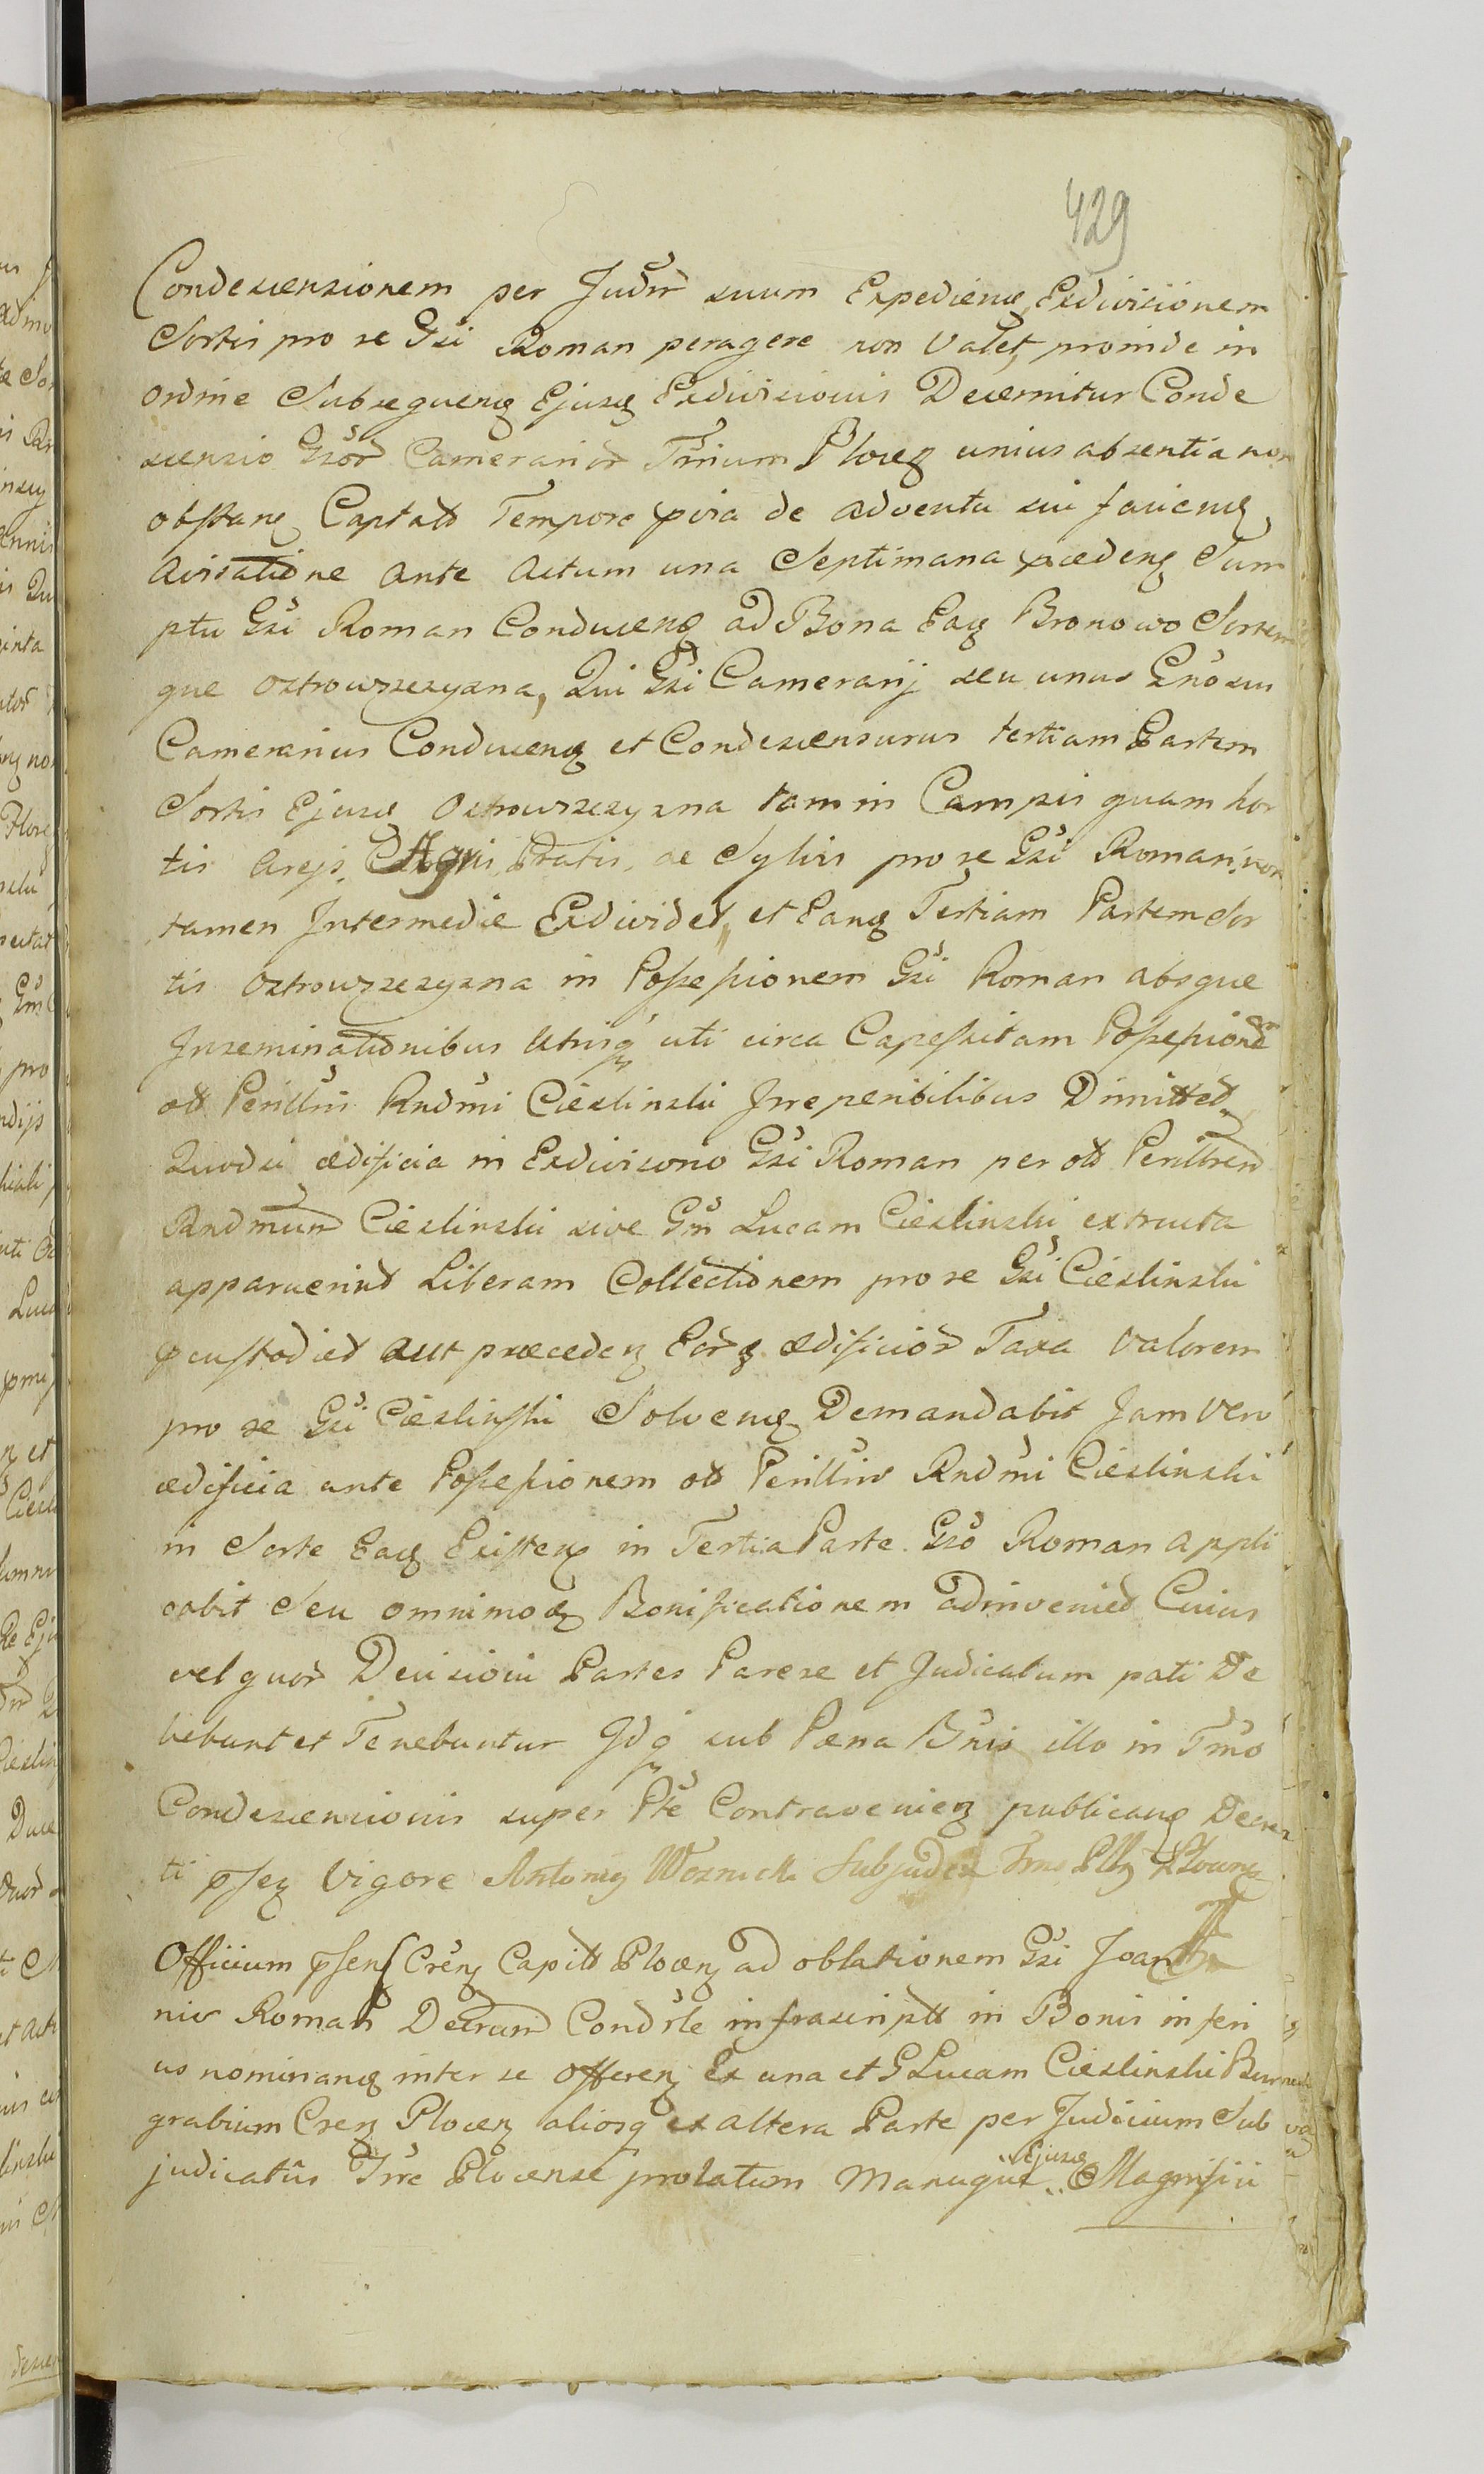 429
Condescensionem per Judm suum Expediend Exdivisionem
Sortis pro se Gsi Roman peragere non Valet, proinde in
ordine Subsequend Ejusd Exdivisionis Decernitur Conde
scensio Gsor Camerarior Trium Plocen unius absentia non
obstan Captato Tempore pvia de adventu sui faciend
Avisatione ante Actum una Septimana præden Sum
ptu Gsi Roman Conducend ad Bona Ead Bronowo Sortem
que Ostrowszczyzna, Qui Gsi Camerarij seu unus Gnosus
Camerarius Conducend et Condescensurus tertiam Partem
Sortis Ejusd Ostrowszczyzna tam in Campis quam hor
tis Areis, Agris, Pratis, ac Sylvis pro se Gsi Roman, non
tamen Intermedie Exdividet, et Eand Tertiam Partem Sor
tis Ostrowszczyzna in Possessionem Gsi Roman absque
Inseminationibus Utrisq uti circa Capessitam Possessione
olt Perillris Rndmi Cieslinski Irreperibilibus Dimittet
Quodsi ædificia in Exdivisono Gsi Roman per olt Perillrem
Rndmum Cieslinski sive Gm Lucam Cieslinski extructa
apparuerint Liberam Collectionem pro se Gsi Cieslinski
pcustodiet aut præceden Eord ædificior Taxa valorem
pro se Gsi Cieslinski Solvend Demandabit Jam vero
ædificia ante Possessionem olt Perillris Rndmi Cieslinski
in Sorte Ead Existen in Tertia Parte Gso Roman appli
cabit Seu omnimod Bonificationem adinveniet Cuius
vel quor Decisioni Partes Parere et Judicatum pati De
bebunt et Tenebuntur Idq sub Pæna Bnis illo in Tmo
Condescensionis super Pte Contravenien publicand Decre
ti psen Vigore Antonius Woznicki Subjudex Trris Plocens
Officium psens Cren Capitt Plocen ad oblationem Gsi Joan
nis Roman Decrum Condrle infrascriptt in Bonis inferi
us nominand inter se Offeren Ex una et G Lucam Cieslinski Bur
grabium Cren Plocen aliosq ex altera Parte per Judicium Sub
judicatus Trre Plocense prolatum Manuque Ejusd Magnifici